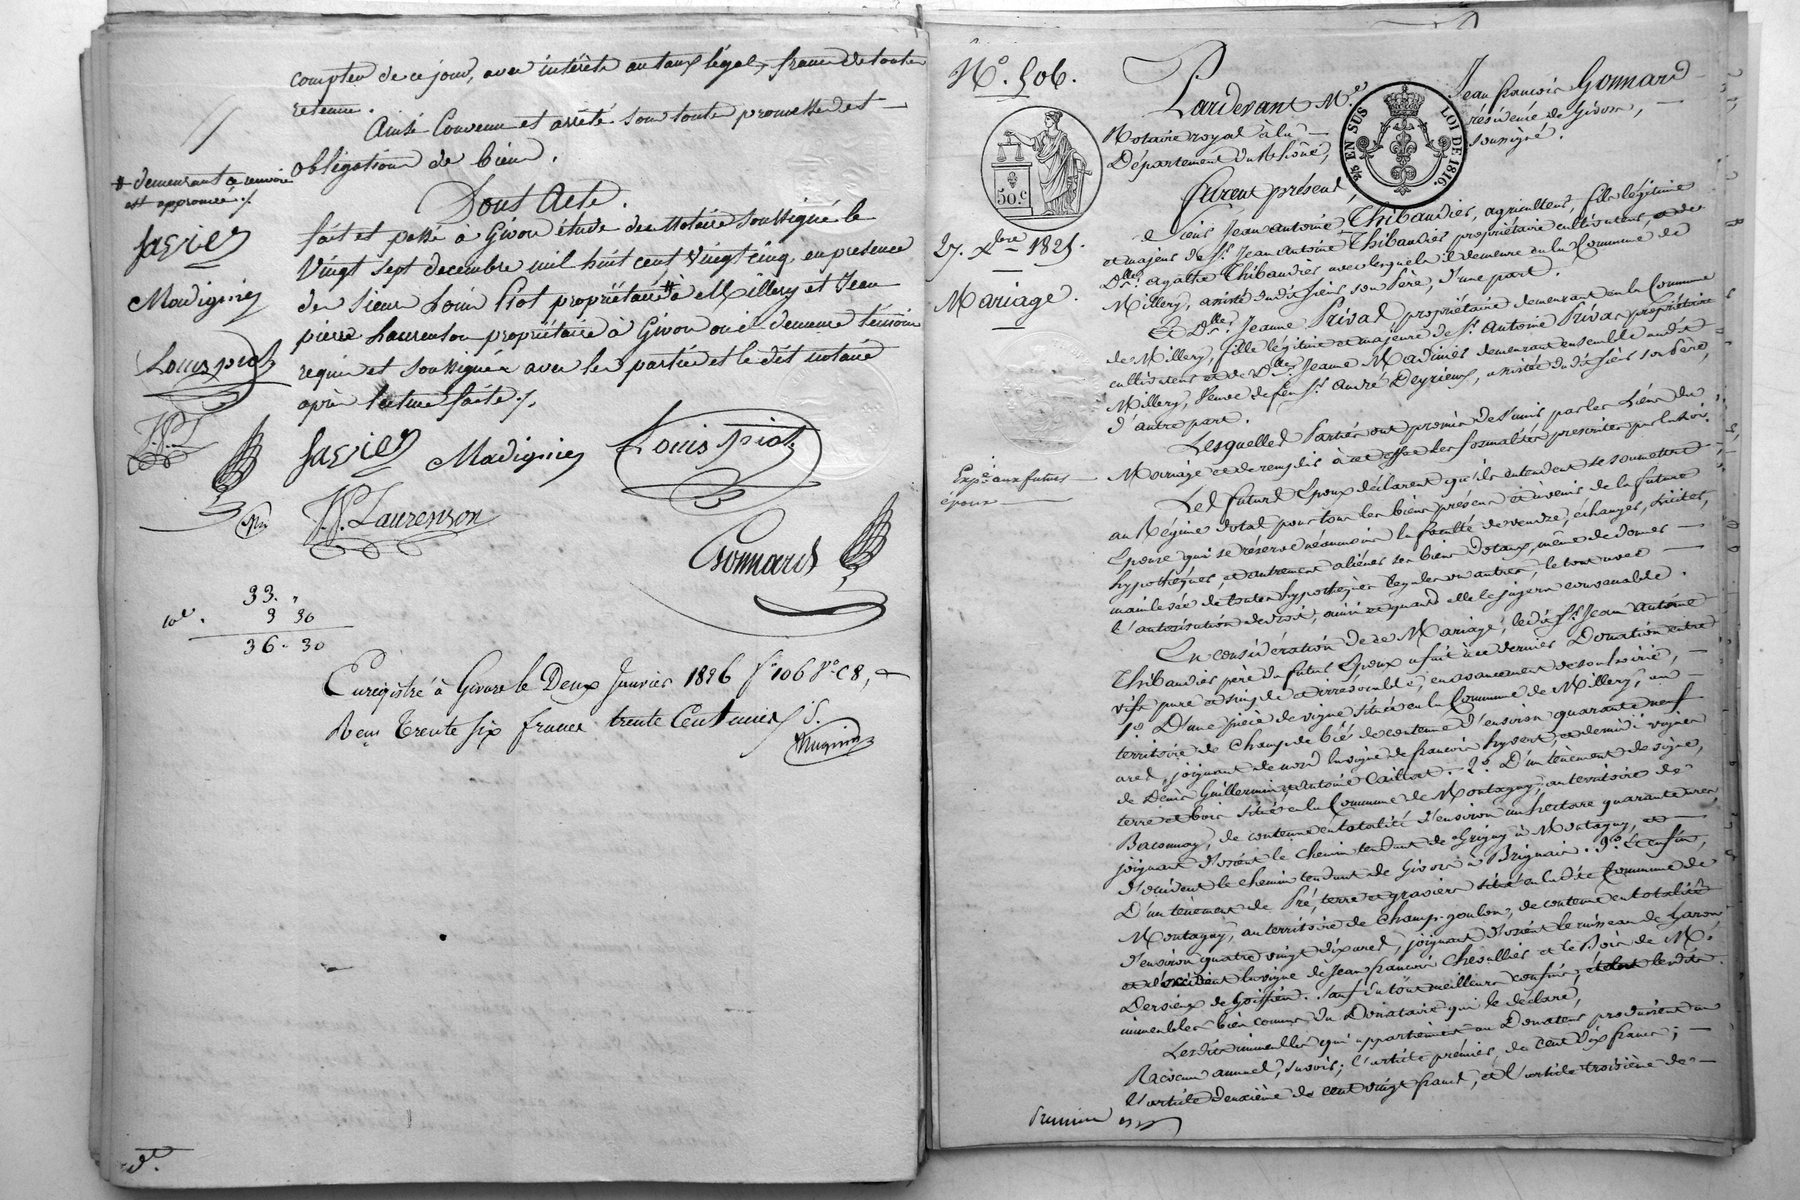 compter de ce jour, avec intérêts au taux légal, franc de toute
retenue.
Ainsi Convenu et arrêté sous toute promesse et
obligation de biens.
Dont Acte.
fait et passé à Givors étude du Notaire soussigné le
Vingt sept decembre mil huit cent Vingt cinq, en presence
des Sieurs Louis Piot propriétaire à Millery et Jean
pierre Laurenson propriétaire à Givors où il demeure témoins
requis et soussignés avec les parties et le dit notaire
après lecture faite ./.
demeurant a renvoi
est approuvé ./.
Madignier
Louis piot
J.P.L
Madignier
Louis piot
J.P. Laurenson
Gonnard
33. "
3 30
36. 30
Enregistré à Givors le Deux Janvier 1826 fo 106 Vo C 8,
Reçu Trente Six francs trente Centimes
No. 506.
50.c
27. Xbre 1825
Mariage.
Expé. aux futurs
époux
Pardevant Me. Jean françois Gonnard
Notaire royal à la résidence de Givors,
Département du Rhône, soussigné.
EN SUS LOI DE 1816.
furent présents
le Sieur Jean Antoine Thibaudier, agriculteur, fils légitime
et majeur de Sr. Jean Antoine Thibaudier propriétaire cultivateur, et de
Dlle. agathe Thibaudier avec lesquels il demeure en la Commune de
Millery, assisté dudit Sieur son Père, d'une part.
Et Dlle. Jeanne Privat propriétaire demeurant en la Commune
de Millery, fille légitime et majeure de Sr. Antoine Privat propriétaire
cultivateur et de Dlle. Jeanne Madinier demeurant ensemble audit
Millery, Veuve de feu Sr. André Deyrieux, assistée dudit Sieur son Père,
d'autre part.
Lesquelles Parties ont promis de s'unir par les Liens du
Mariage et de remplir à cet effet les formalités prescrites par la loi.
Les futurs Epoux déclarent qu'ils entendent se soumettre
au Régime dotal pour tous les biens présens et à venir de la future
Epouse, qui se réserve néanmoins la faculté de vendre, échanger, traiter,
hypothéquer, et autrement aliéner ses biens dotaux, même de donner
main levée de toutes hypothèques légales ou autres, le tout avec
l'autorisation de droit, ainsi et quand elle le jugera convenable.
En considération de ce Mariage, ledit Sr. Jean Antoine
Thibaudier père du futur Epoux a fait à ce dernier Donation entre
vifs pure et simple et irrévocable, en avancement de son hoirie,
1o. D'une pièce de vigne située en la Commune de Millery, au
territoire de Champ de blé, de contenue d'environ quarante neuf
ares, joignant de nord la vigne de françois hyvert, et de midi vignes
de Denis Guillermin et Antoine Caillot. 2o. D'un ténement de vigne,
terre et bois situé en la Commune de Montagny, au territoire de
Baconnay, de contenue en totalité d'environ un hectare quarante ares,
joignant d'orient le chemin tendant de Grigny à Montagny, et
d'occident le chemin tendant de Givors à Brignais. 3o. Et enfin,
D'un ténement de Pré, terre et gravier situé en ladite Commune de
Montagny, au territoire de Champ-goulon, de contenue en totalité
d'environ quatre vingt dix ares, joignant d'orient le ruisseau de Garon,
et d'occident la vigne de Jean françois Chevallier et le Bois de Mr.
Dervieux de Goiffieu. Sauf du tout meilleurs confins, lesdits
immeubles bien connus du Donataire qui le déclare,
Lesdits immeubles qui appartiennent au Donateur produisent un
Revenu annuel, savoir; l'article premier, de cent dix francs;
l'article deuxième de cent vingt francs, et l'article troisième de